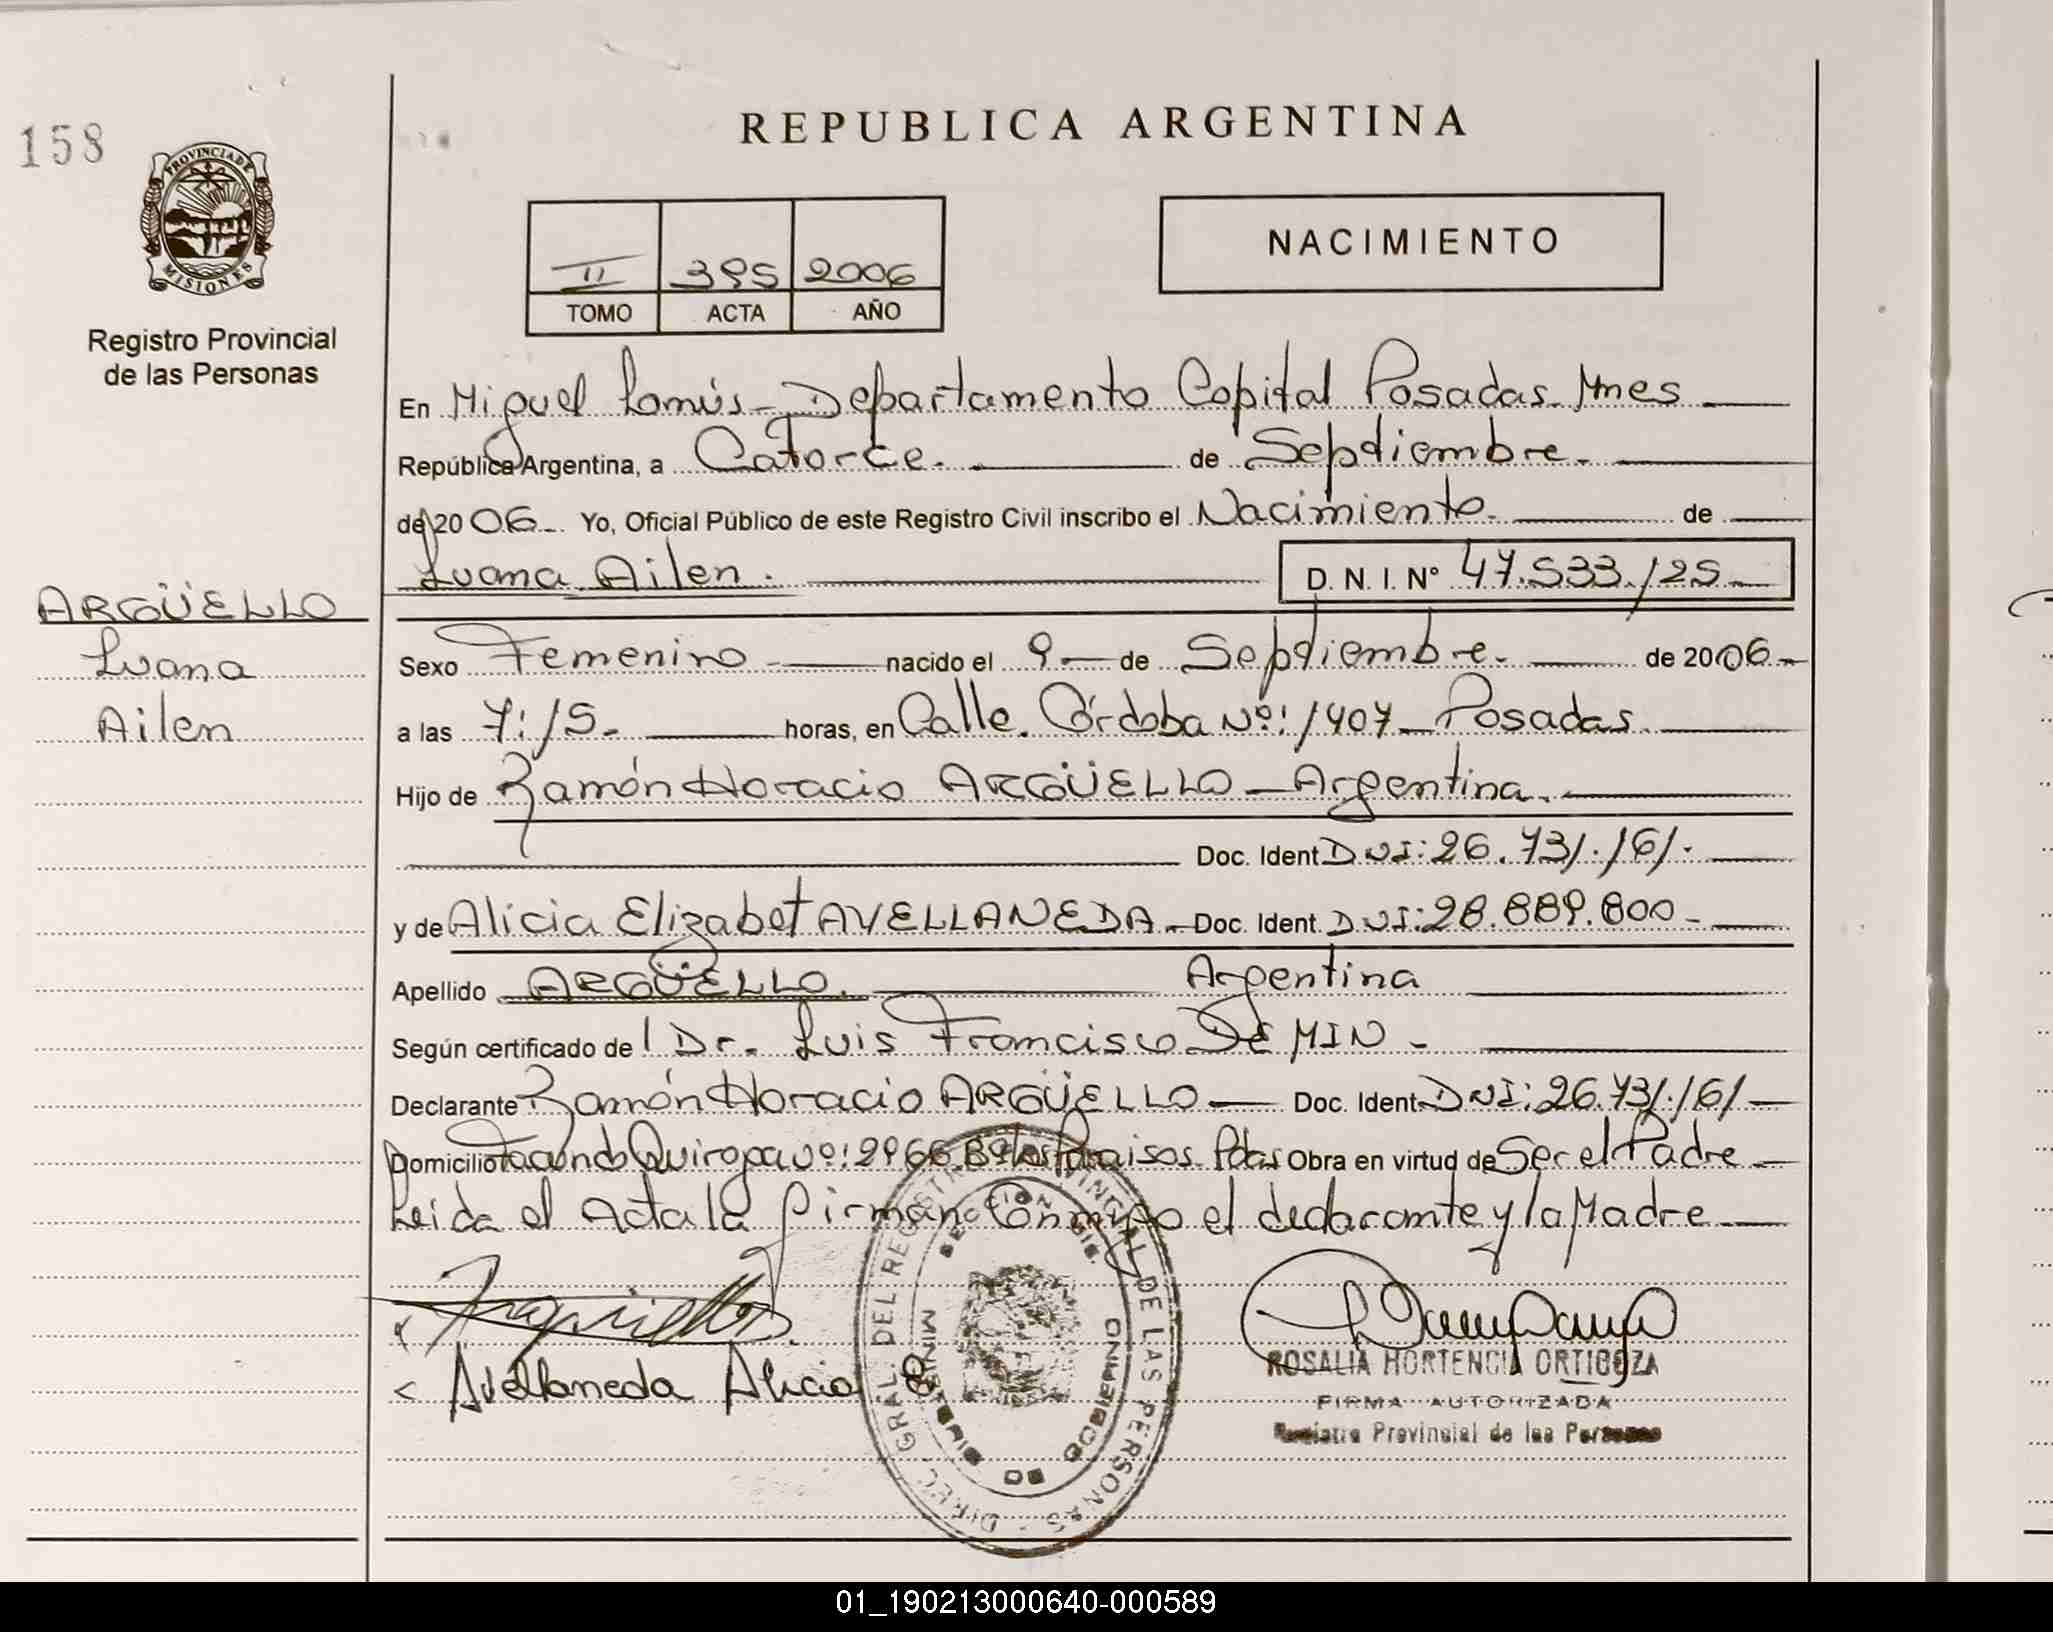 158
PROVINCIA DE
MISIONES
Registro Provincial
de las Personas
ARGÜELLO
Luana
Ailen
REPUBLICA ARGENTINA
II 395 2006
TOMO ACTA AÑO
NACIMIENTO
En Miguel Lanús - Departamento Capital Posadas. Mnes
República Argentina, a Catorce. de Sepdiembre.
de 2006. Yo, Oficial Público de este Registro Civil inscribo el Nacimiento. de
Luana Ailen. D. N. I. Nº 47.533.125
Sexo Femenino nacido el 9 de Sepdiembre. de 2006
a las 7:15. horas, en Calle Córdoba Nº: 1407 - Posadas.
Hijo de Ramón Horacio ARGÜELLO - Argentina.
Doc. Ident DNI: 26.731.161.
y de Alicia Elizabet AVELLANEDA. Doc. Ident. DNI: 28.889.800
Apellido ARGÜELLO. Argentina
Según certificado del Dr. Luis Francisco De MIN
Declarante Ramón Horacio ARGÜELLO Doc. Ident. DNI: 26.731.161
Domicilio Facundo Quiroga Nº: 2966. Bº los Paraisos. Pdas Obra en virtud de Ser el Padre
Leida el Acta la firman Conmigo el declarante y la Madre
Avellaneda Alicia
DIREC. GRAL. DEL REGISTRO PROVINCIAL DE LAS PERSONAS
MINISTERIO DE GOBIERNO
ROSALIA HORTENCIA ORTIGOZA
FIRMA AUTORIZADA
Registro Provincial de las Personas
01_190213000640-000589